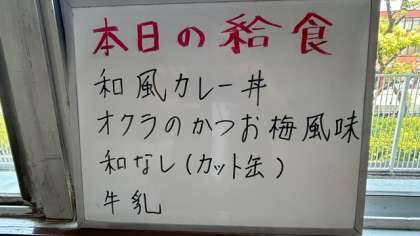 本日の給食
和風カレー丼
オクラのかつお梅風味
和なし(カット缶)
牛乳